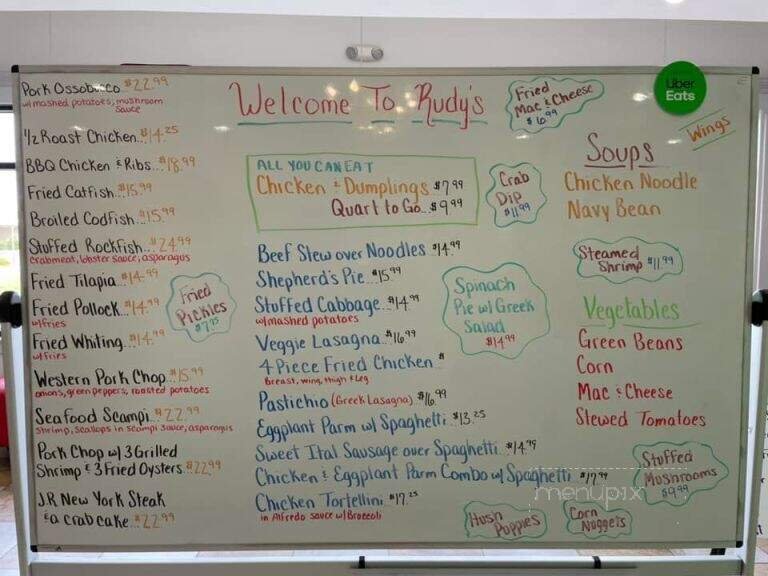 Pork Ossobuco..$22.99
w/mashed potatoes, mushroom
sauce
1/2 Roast Chicken..$14.25
BBQ Chicken & Ribs...$18.99
Fried Catfish...$15.99
Broiled Codfish...$15.99
Stuffed Rockfish...$24.99
crabmeat, lobster sauce, asparagus
Fried Tilapia...$14.99
Fried Pollock...$14.99
w/fries
Fried Whiting...$14.99
w/fries
Western Pork Chop...$15.99
onions, green peppers, roasted potatoes
Seafood Scampi...$22.99
shrimp, scallops in scampi sauce, asparagus
Pork Chop w/ 3 Grilled
Shrimp & 3 Fried Oysters...$22.99
J.R. New York Steak
& a crab cake...$22.99
Fried
Pickles
$7.95
Welcome To Rudy's
Fried
Mac & Cheese
$6.99
Uber
Eats
Wings
ALL YOU CAN EAT
Chicken & Dumplings $7.99
Quart to Go...$9.99
Crab
Dip
$11.99
Beef Stew over Noodles $14.99
Shepherd's Pie..$15.99
Stuffed Cabbage...$14.99
w/mashed potatoes
Veggie Lasagna..$16.99
4 Piece Fried Chicken $
Breast, wing, thigh & leg
Pastichio (Greek Lasagna) $16.99
Eggplant Parm w/ Spaghetti..$13.25
Sweet Ital Sausage over Spaghetti..$14.99
Chicken & Eggplant Parm Combo w/ Spaghetti..$17.99
Chicken Tortellini..$17.25
in Alfredo sauce w/ Broccoli
Spinach
Pie w/ Greek
Salad
$14.99
Hush
Puppies
Corn
Nuggets
Soups
Chicken Noodle
Navy Bean
Steamed
Shrimp $11.99
Vegetables
Green Beans
Corn
Mac & Cheese
Stewed Tomatoes
Stuffed
Mushrooms
$9.99
menupix